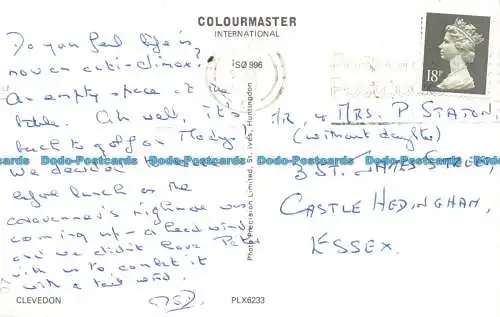 COLOURMASTER
INTERNATIONAL
Do you feel life is
now an anti-climax?
An empty space at the
table. Ah well, it's
back to golf on
We decided
before lunch as the
caravanner's nightmare was
coming up - a head wind
and we didn't have Peter
with us to combat it
with a tail wind.
CLEVEDON
PLX6233
Photo Precision Limited, St. Ives, Huntingdon
18P
MR. & MRS. P STATON,
(without daughter)
3 ST. JAMES STREET,
CASTLE HEDINGHAM,
ESSEX.
Dodo-Postcards Dodo-Postcards Dodo-Postcards Dodo-Postcards Dodo-Postcards